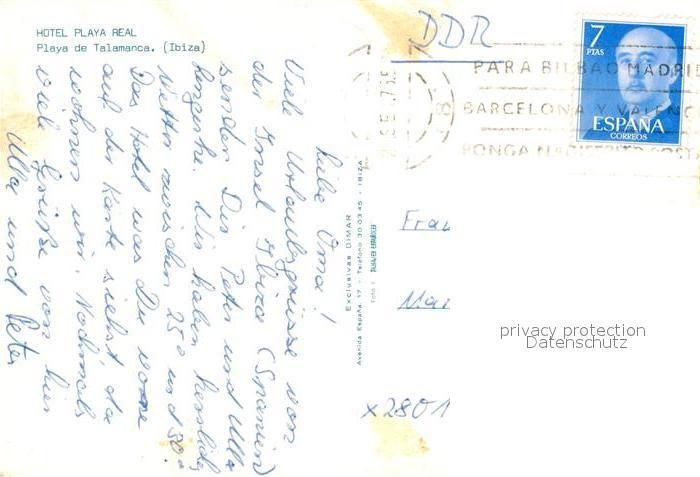 HOTEL PLAYA REAL
Playa de Talamanca. (Ibiza)
Liebe Oma!
Viele Urlaubsgrüsse von
der Insel Ibiza (Spanien)
senden Dir Peter und Ulla
Wir haben
zwischen 25° und 30°.
Das Hotel was Du vorne
auf der Karte siehst, da
wohnen wir. Nochmals
viele Grüße von hier
Ulla und Peter
Exclusivas DIMAR
Avenida España, 17 - Teléfono 30 03 45 - IBIZA
DDR
PARA BILBAO MADRID
BARCELONA Y VALENC
PONGA
7
PTAS
ESPAÑA
CORREOS
Frau
Mar
x2801
privacy protection
Datenschutz